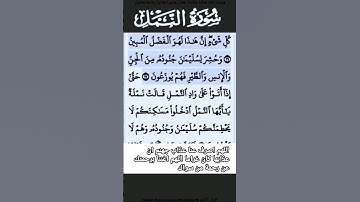 سُورَةُ النَّمْلِ
كُلِّ شَيْءٍ إِنَّ هَٰذَا لَهُوَ ٱلْفَضْلُ ٱلْمُبِينُ
وَحُشِرَ لِسُلَيْمَٰنَ جُنُودُهُۥ مِنَ ٱلْجِنِّ
وَٱلْإِنسِ وَٱلطَّيْرِ فَهُمْ يُوزَعُونَ حَتَّىٰٓ
إِذَآ أَتَوْا۟ عَلَىٰ وَادِ ٱلنَّمْلِ قَالَتْ نَمْلَةٌ
يَٰٓأَيُّهَا ٱلنَّمْلُ ٱدْخُلُوا۟ مَسَٰكِنَكُمْ لَا
يَحْطِمَنَّكُمْ سُلَيْمَٰنُ وَجُنُودُهُۥ وَهُمْ لَا
اللهم اصرف عنا عذاب جهنم ان
عذابها كان غراما اللهم اغننا برحمتك
عن رحمة من سواك